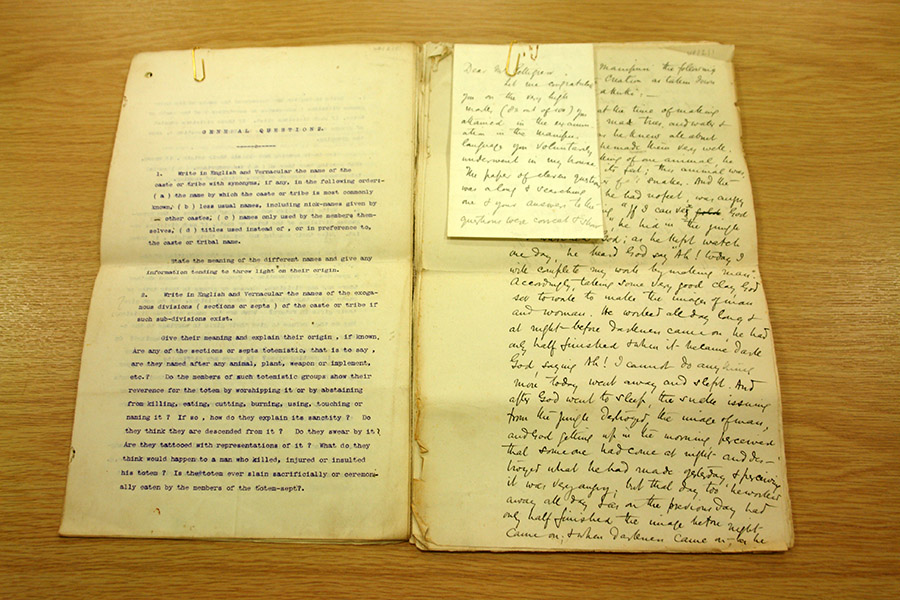 GENERAL QUESTIONS.
1. Write in English and Vernacular the name of the
caste or tribe with synonyms, if any, in the following order:-
( a ) the name by which the caste or tribe is most commonly
known, ( b ) less usual names, including nick-names given by
other castes, ( c ) names only used by the members them-
selves, ( d ) titles used instead of , or in preference to,
the caste or tribal name.
State the meaning of the different names and give any
information tending to throw light on their origin.
2. Write in English and Vernacular the names of the exoga-
mous divisions ( sections or septs ) of the caste or tribe if
such sub-divisions exist.
Give their meaning and explain their origin , if known.
Are any of the sections or septs totemistic, that is to say ,
are they named after any animal, plant, weapon or implement,
etc.? Do the members of such totemistic groups show their
reverence for the totem by worshipping it or by abstaining
from killing, eating, cutting, burning, using, touching or
naming it ? If so , how do they explain its sanctity ? Do
they think they are descended from it ? Do they swear by it?
Are they tattooed with representations of it ? What do they
think would happen to a man who killed, injured or insulted
his totem ? Is the totem ever slain sacrificially or ceremon-
ally eaten by the members of the totem-sept?.
Dear Mr Pettigrew,
Let me congratulate
you on the very high
marks (83 out of 100) you
obtained in the examin
ation in the Manipuri
language you voluntarily
underwent in my house
The paper of eleven questions
was a long & searching
one & your answers to the
questions were correct &
Manipuri the following
Creation as taken down
at the time of making
made trees and water &
as he knew all about
he made them very well.
king of one animal, he
its feet; this animal was
snake. And the
he had no feet, was angry
If I can God
he hid in the jungle
God; as he kept watch
one day, he heard God say "Ah! today I
will complete my work by making man".
Accordingly, taking some very good clay, God
set to work to make the images of man
and woman. He worked all day long &
at night before darkness came on, he had
only half finished & when it became dark
God saying Ah! I cannot do anything
more today went away and slept. And
after God went to sleep the snake issuing
from the jungle destroyed the image of man,
and God getting up in the morning perceived
that someone had come at night and des-
troyed what he had made yesterday, & perceiving
it was very angry; but that day too he worked
away all day & as on the previous day had
only half finished the image before night
came on; & when darkness came on, he